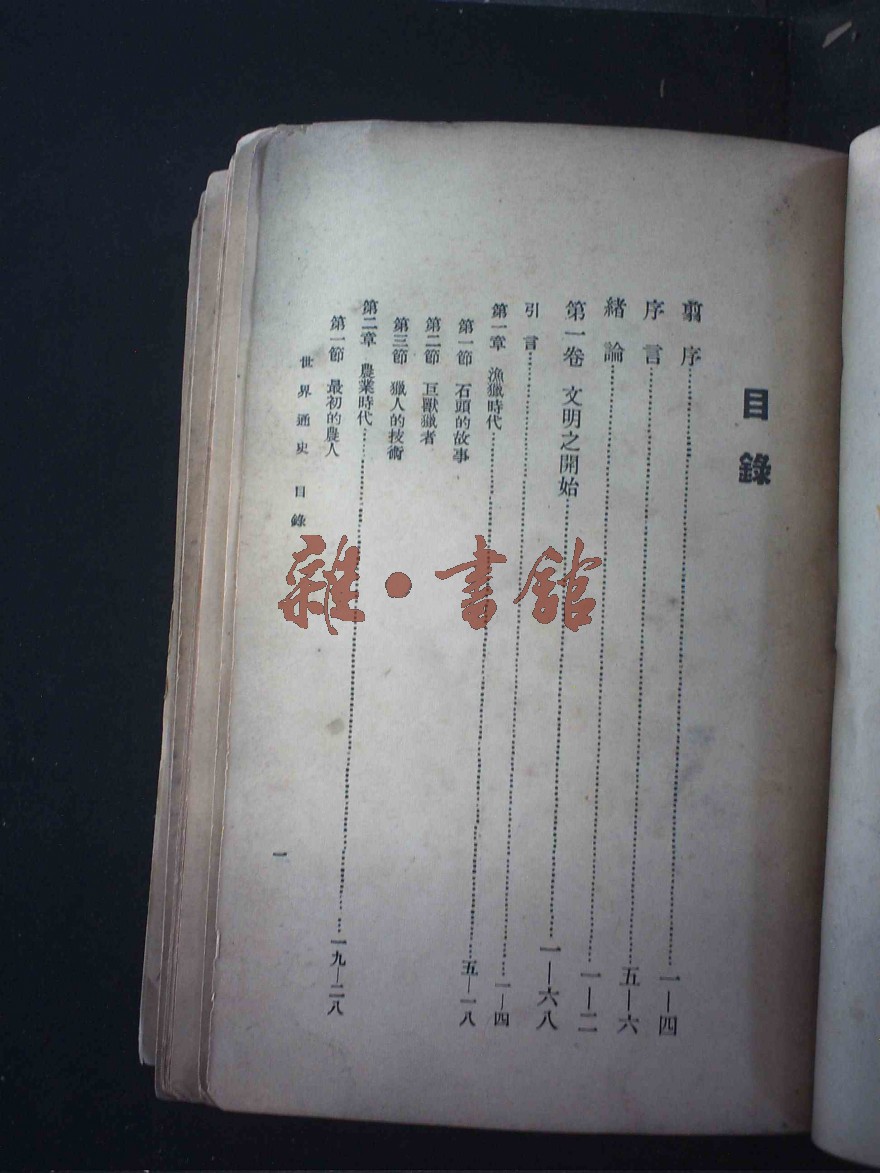 目錄
翦序……一—四
序言……五—六
緒論……一—二
第一卷 文明之開始……一—六八
引言……一—四
第一章 漁獵時代……五—一八
第一節 石頭的故事
第二節 巨獸獵者
第三節 獵人的技術
第二章 農業時代……一九—二八
第一節 最初的農人
世界通史 目錄
一
雜·書館